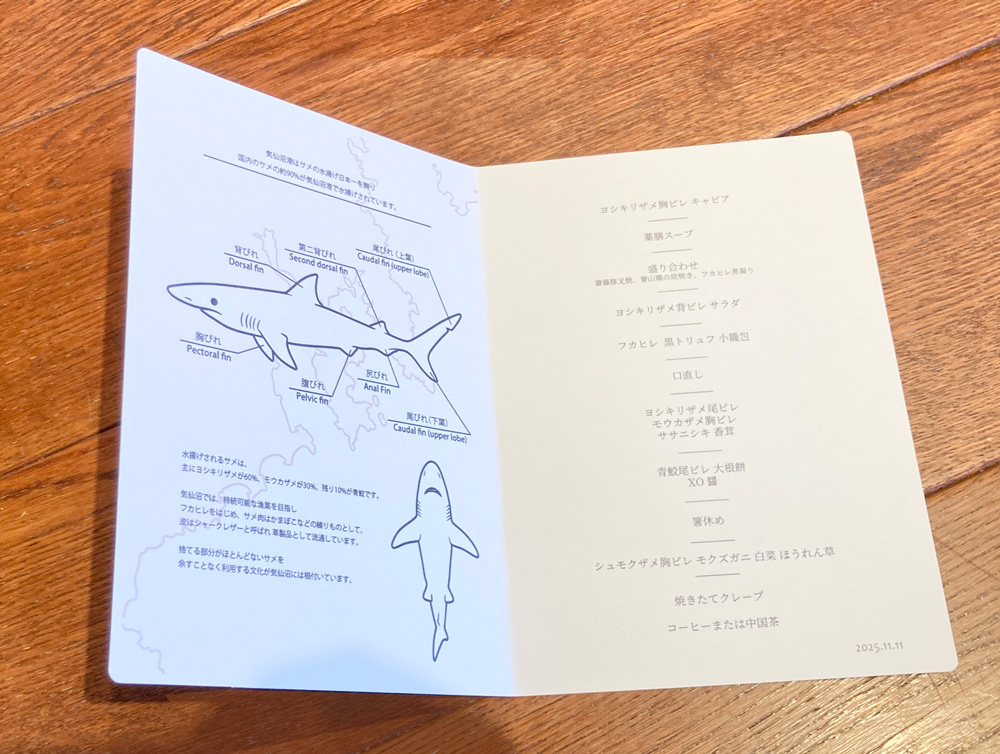 気仙沼港はサメの水揚げ日本一を誇り
国内のサメの約90%が気仙沼港で水揚げされています。
背びれ
Dorsal fin
第二背びれ
Second dorsal fin
尾びれ(上葉)
Caudal fin (upper lobe)
胸びれ
Pectoral fin
腹びれ
Pelvic fin
尻びれ
Anal Fin
尾びれ(下葉)
Caudal fin (upper lobe)
水揚げされるサメは、
主にヨシキリザメが60%、モウカザメが30%、残り10%が青鮫です。
気仙沼では、持続可能な漁業を目指し
フカヒレをはじめ、サメ肉はかまぼこなどの練りものとして、
皮はシャークレザーと呼ばれ革製品として流通しています。
捨てる部分がほとんどないサメを
余すことなく利用する文化が気仙沼には根付いています。
ヨシキリザメ胸ビレ キャビア
薬膳スープ
盛り合わせ
齋藤豚叉焼、青山鶏の炭焼き、フカヒレ煮凝り
ヨシキリザメ背ビレ サラダ
フカヒレ 黒トリュフ 小籠包
口直し
ヨシキリザメ尾ビレ
モウカザメ胸ビレ
ササニシキ 香茸
青鮫尾ビレ 大根餅
XO 醤
箸休め
シュモクザメ胸ビレ モクズガニ 白菜 ほうれん草
焼きたてクレープ
コーヒーまたは中国茶
2025.11.11